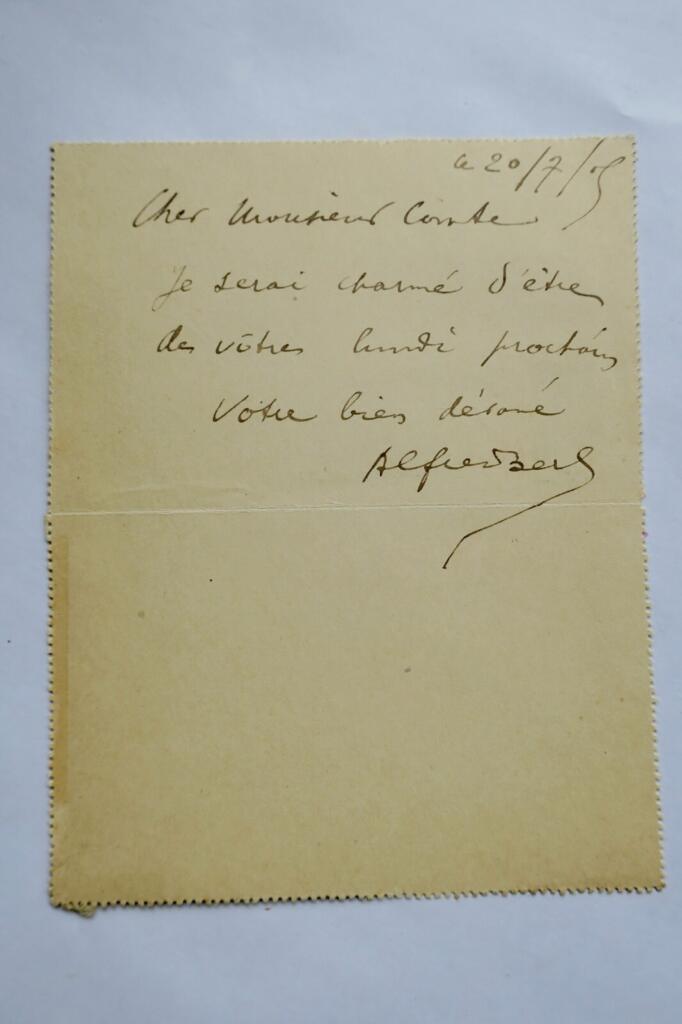 le 20/7/05
Cher Monsieur Comte
Je serai charmé d'être
des vôtres lundi prochain
Votre bien dévoué
Alfred Berl